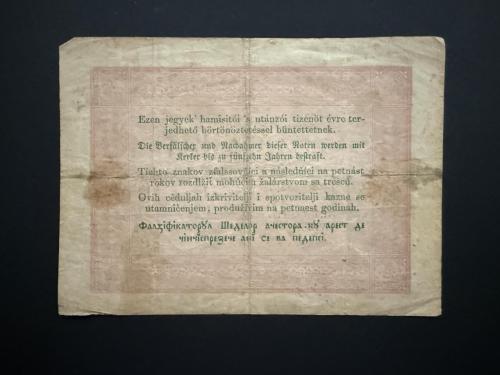 Ezen jegyek' hamisitói 's utánzói tizenöt évre ter-
jedhető börtönöztetéssel büntettetnek.
Die Verfälscher und Nachahmer dieser Noten werden mit
Kerker bis zu fünfzehn Jahren bestraft.
Tichto znakov sfalšovníci a následníci na petnást
rokov rozdĺžit mohúcim žalárstvom sa trescú.
Ovih céduljah izkrivitelji i spotvoritelji kazne se
utamničenjem, produživim na petnaest godinah.
Фалсіфікаторꙋл Шеделор ачестора кꙋ арест де
чінчіспрезече ані се ва педепсі.